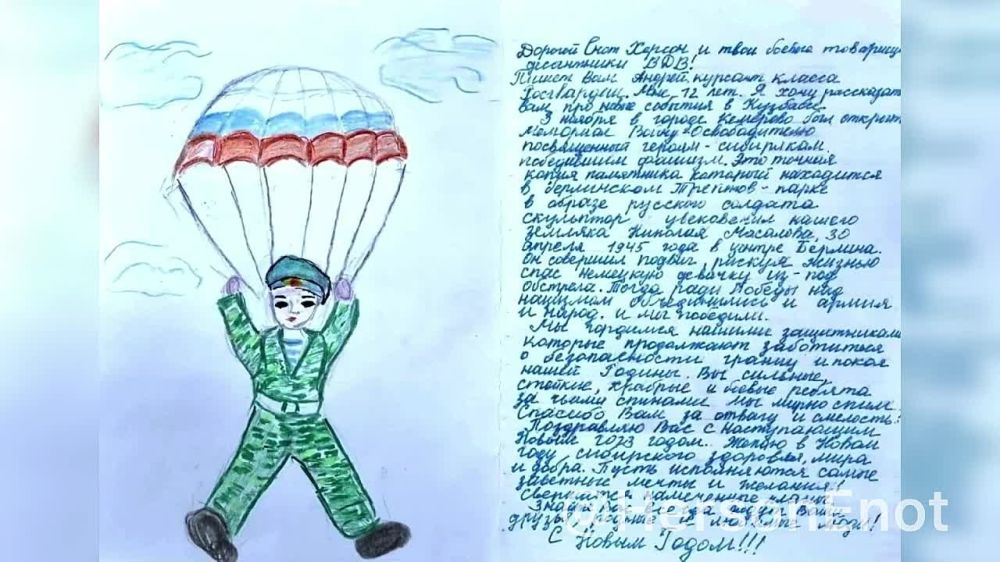 Дорогой Енот Херсон и твои боевые товарищи
десантники ВДВ!
Пишет Вам Андрей, курсант класса
Росгвардии. Мне 12 лет. Я хочу рассказать
вам про наше событие в Кузбассе.
3 ноября в городе Кемерово был открыт
мемориал Воину-Освободителю
посвященный героям-сибирякам,
победившим фашизм. Это точная
копия памятника который находится
в берлинском Трептов-парке
в образе русского солдата
скульптор увековечил нашего
земляка Николая Масалова. 30
апреля 1945 года в центре Берлина.
Он совершил подвиг, рискуя жизнью
спас немецкую девочку из-под
обстрела. Тогда ради Победы над
нацизмом объединились и армия
и народ. и мы победили.
Мы гордимся нашими защитниками
которые продолжают заботиться
о безопасности границ и покоя
нашей Родины. Вы сильные,
стойкие, храбрые и боевые ребята
за чьими спинами мы мирно спим.
Спасибо Вам за отвагу и смелость!
Поздравляю Вас с наступающим
Новым 2023 годом. Желаю в Новом
году сибирского здоровья, мира
и добра. Пусть исполняются самые
заветные мечты и желания!
намеченные планы
всегда ждут Вас
друзья
С Новым Годом!!!
@HersonEnot